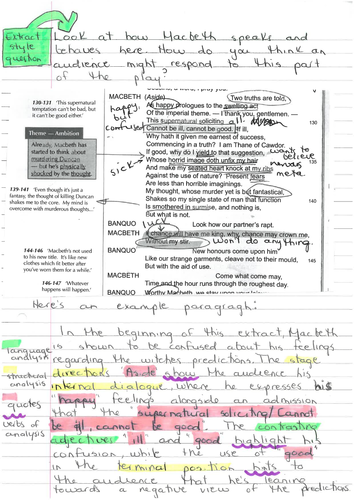 Extract style question
Look at how Macbeth speaks and
behaves here. How do you think an
audience might respond to this part
of the play?
MACBETH (Aside) Two truths are told,
As happy prologues to the swelling act
Of the imperial theme. – I thank you, gentlemen. –
This supernatural soliciting
Cannot be ill, cannot be good. If ill, 130
Why hath it given me earnest of success,
Commencing in a truth? I am Thane of Cawdor.
If good, why do I yield to that suggestion,
Whose horrid image doth unfix my hair
And make my seated heart knock at my ribs 135
Against the use of nature? Present fears
Are less than horrible imaginings.
My thought, whose murder yet is but fantastical,
Shakes so my single state of man that function
Is smothered in surmise, and nothing is, 140
But what is not.
BANQUO Look how our partner's rapt.
MACBETH If chance will have me king, why, chance may crown me,
Without my stir.
BANQUO New honours come upon him
Like our strange garments, cleave not to their mould,
But with the aid of use. 145
MACBETH Come what may,
Time and the hour runs through the roughest day.
BANQUO Worthy Macbeth, we stay upon
happy but confused
sick
wants to believe
luck
won't do anything.
130-131 'This supernatural
temptation can't be bad, but
it can't be good either.'
Theme — Ambition
Already, Macbeth has
started to think about
murdering Duncan
— but he's physically
shocked by the thought.
139-141 'Even though it's just a
fantasy, the thought of killing Duncan
shakes me to the core. My mind is
overcome with murderous thoughts...'
144-146 'Macbeth's not used
to his new title. It's like new
clothes which fit better after
you've worn them for a while.'
146-147 'Whatever
happens will happen.'
Here's an example paragraph:
language analysis
structural analysis
quotes
verbs of analysis
In the beginning of this extract, Macbeth
is shown to be confused about his feelings
regarding the witches predictions. The stage
directions 'Aside' show the audience his
internal dialogue, where he expresses his
'happy' feelings alongside an admission
that the 'supernatural soliciting/Cannot
be ill, cannot be good'. The contrasting
adjectives 'ill' and 'good' highlight his
confusion, while the use of 'good'
in the terminal position hints to
the audience that he's leaning
towards a negative view of the predictions.